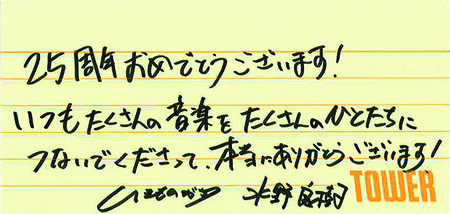 25周年おめでとうございます!
いつもたくさんの音楽をたくさんのひとたちに
つないでくださって、本当にありがとうございます!
いきものがかり 水野良樹
TOWER